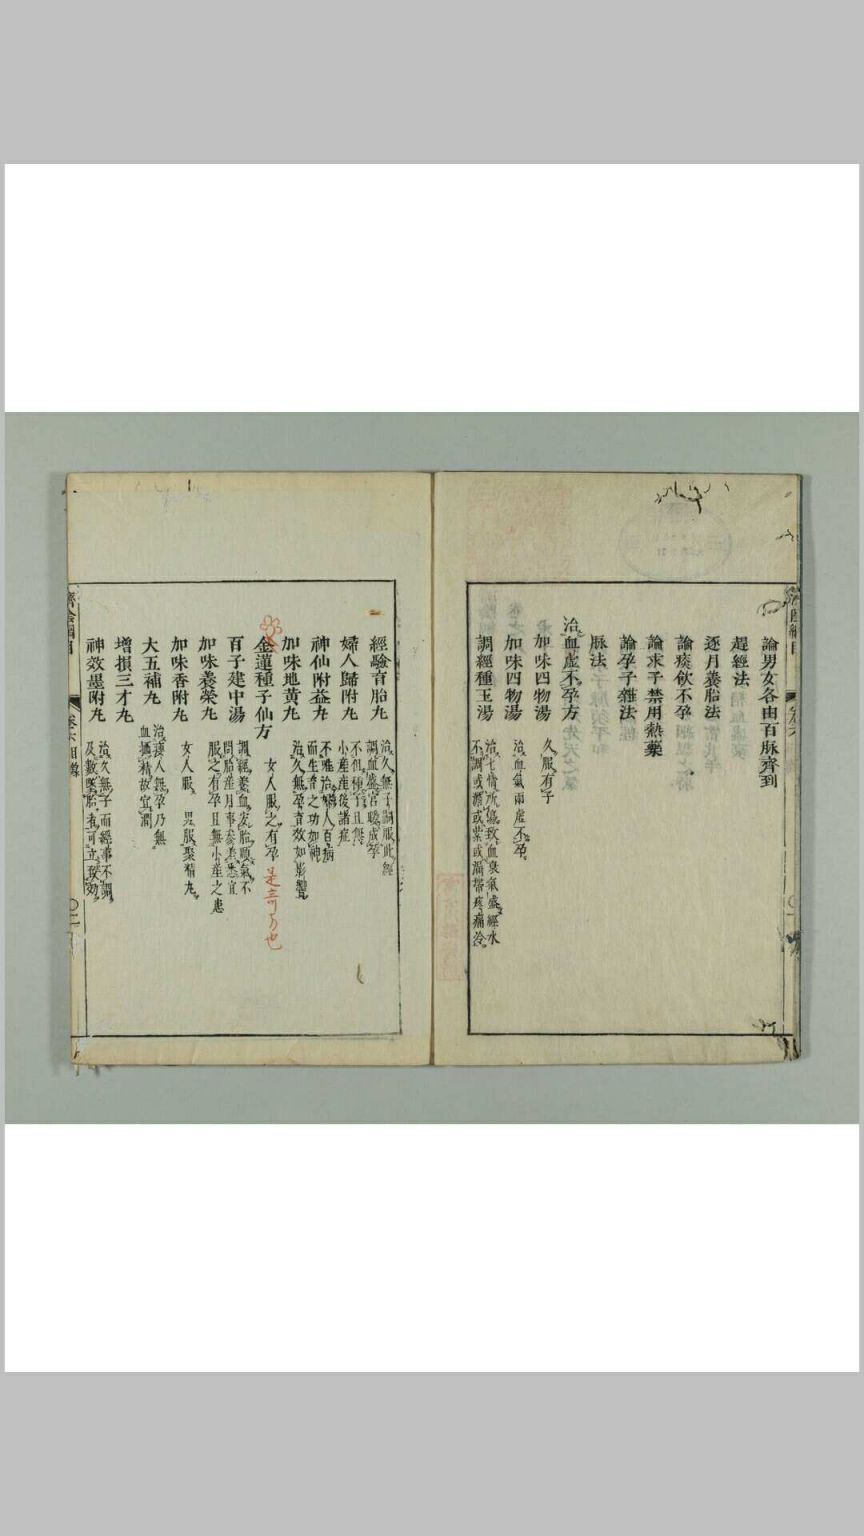 論男女各由百脉齊到
趕經法
逐月養胎法
論痰飲不孕
論求子禁用熱藥
論孕子雜法
脉法
治血虛不孕方
加味四物湯
久服有子
加味四物湯
治血氣兩虛不孕
調經種玉湯
治七情所傷致血衰氣盛經水
不調或漂或紫或漏帶疼痛冷
經驗育胎丸
治久無子嗣服此經
調血盛宮暖成孕
婦人歸附丸
不但種子且無
小產產後諸症
神仙附益丸
不唯治婦人百病
而生育之功如神
加味地黃丸
治久無孕育效如影響
金蓮種子仙方
女人服之有孕
是奇方也
百子建中湯
調經養血安胎順氣不
問胎產月事參差悉宜
加味養榮丸
服之有孕且無小產之患
加味香附丸
女人服
男服聚精丸
大五補丸
治婦人無孕乃無
血攝精故宜潤
增損三才丸
神效墨附丸
治久無子而經事不調
及數墮胎者可立致效
卷六目錄